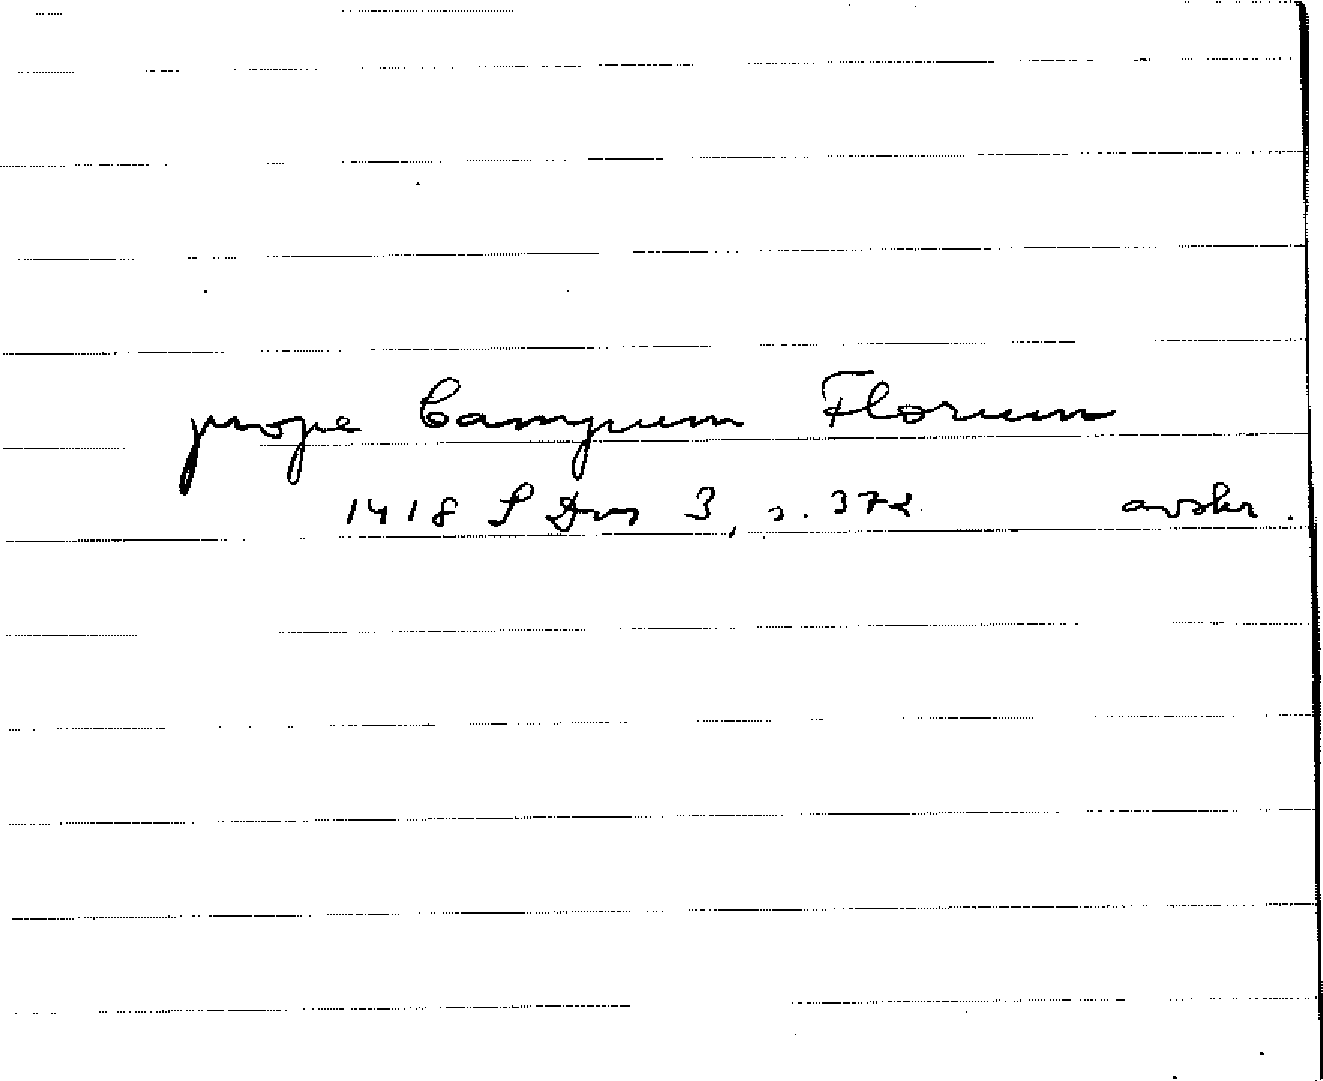 prope Campum Florum
1418 SDns 3, s. 372 avskr.